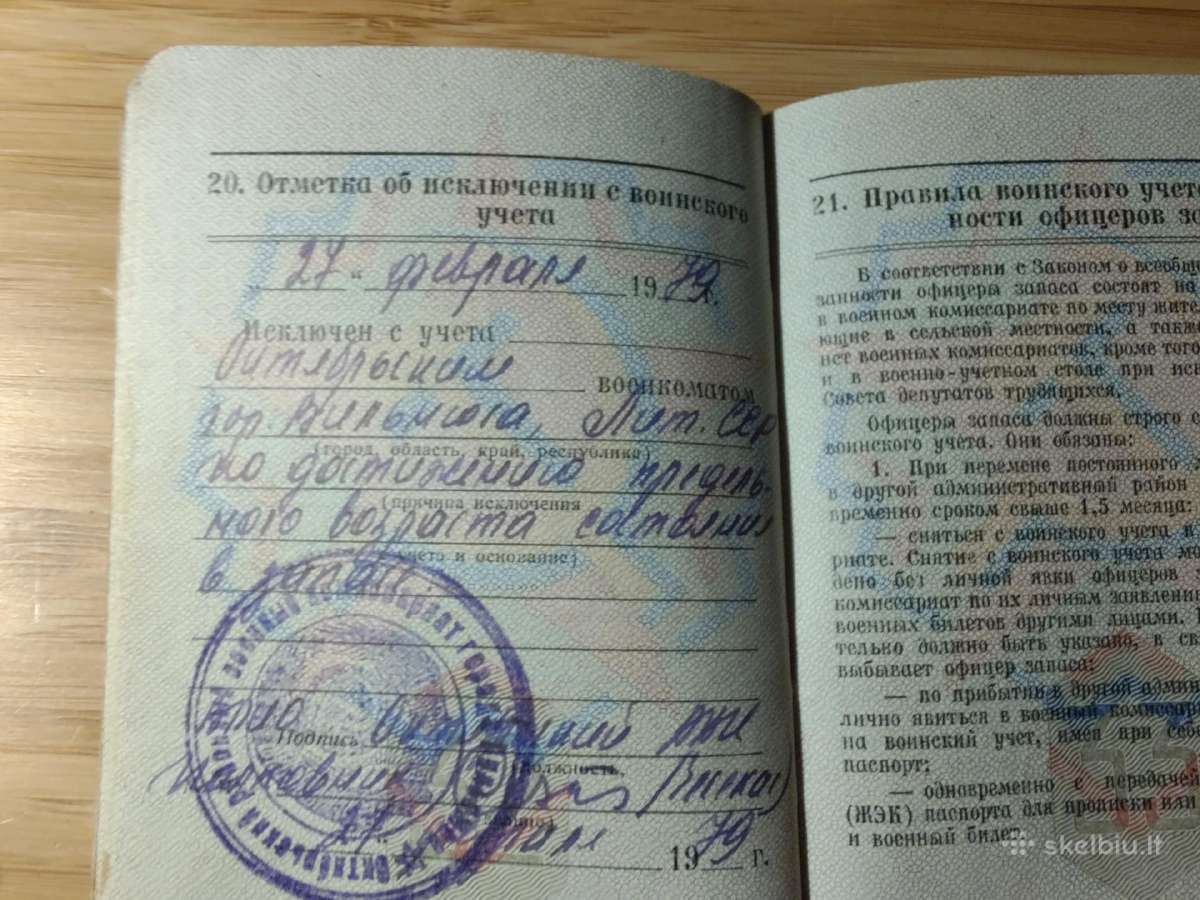 20. Отметка об исключении с воинского
учета
„27“ февраля 1979 г.
Исключен с учета
Октябрьским военкоматом
гор. Вильнюса, Лит. ССР
(город, область, край, республика)
по достижению предель-
(причина исключения
ного возраста состояния
учета и основание)
в запасе.
Подпись
(должность,
Полковник
27 1979 г.
Октябрьский районный военный комиссариат города Вильнюса
21. Правила воинского учет
ности офицеров за
В соответствии с Законом о всеобщ
занности офицеры запаса состоят на
в военном комиссариате по месту жите
ющие в сельской местности, а такж
нет военных комиссариатов, кроме того
и в военно-учетном столе при исп
Совета депутатов трудящихся.
Офицеры запаса должны строго с
воинского учета. Они обязаны:
1. При перемене постоянного
в другой административный район
временно сроком свыше 1,5 месяца:
— сняться с воинского учета в
риате. Снятие с воинского учета мо
дено без личной явки офицеров
комиссариат по их личным заявлени
военных билетов другими лицами.
тельно должно быть указано, в св
выбывает офицер запаса:
— по прибытии в другой админ
лично явиться в военный комиссар
на воинский учет, имея при себ
паспорт;
— одновременно с передачей
(ЖЭК) паспорта для прописки или
и военный билет.
skelbiu.lt